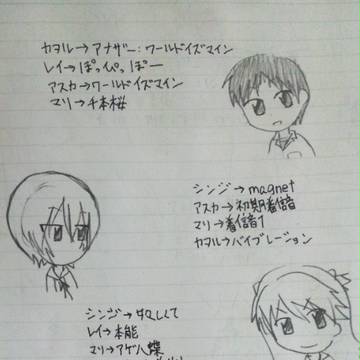 カヲル→アナザー:ワールドイズマイン
レイ→ぽっぴっぽー
アスカ→ワールドイズマイン
マリ→千本桜
シンジ→magnet
アスカ→初期着信音
マリ→着信音1
カヲル→バイブレーション
シンジ→中央しくて
レイ→本能
マリ→アゲハ蝶